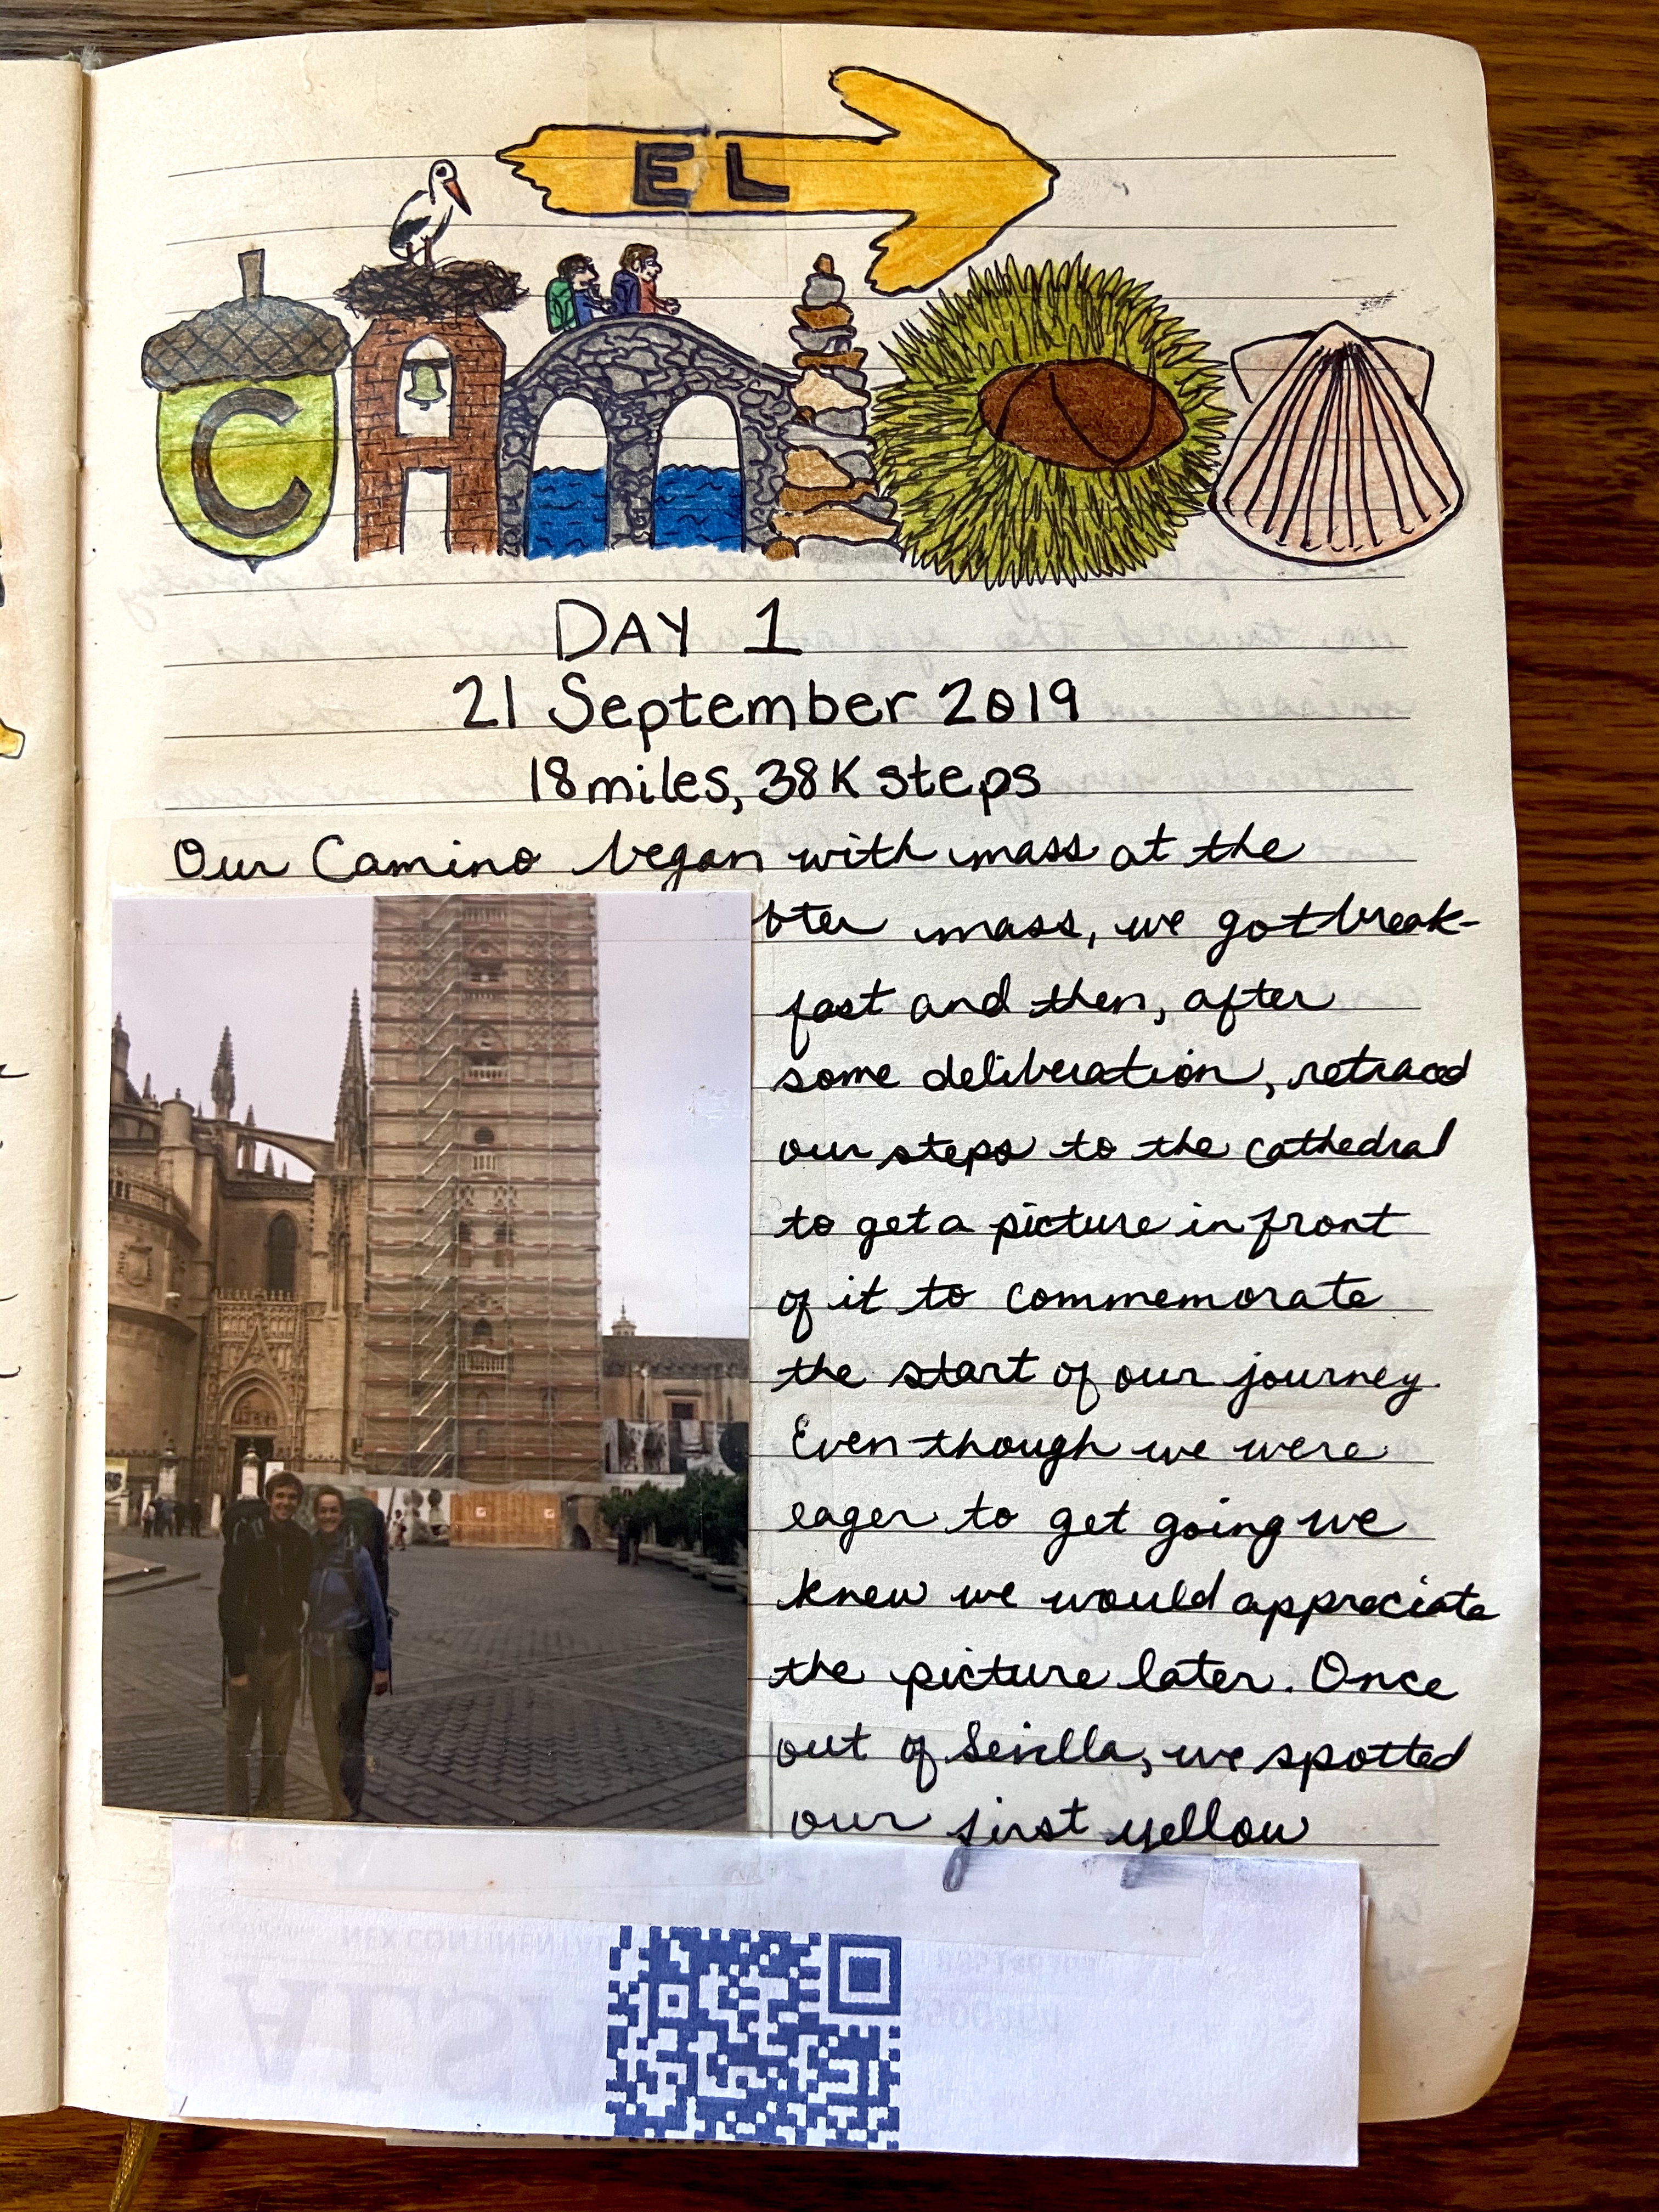 EL
CAMINO
DAY 1
21 September 2019
18 miles, 38K steps
Our Camino began with mass at the
mass, we got break-
fast and then, after
some deliberation, retraced
our steps to the cathedral
to get a picture in front
of it to commemorate
the start of our journey.
Even though we were
eager to get going we
knew we would appreciate
the picture later. Once
out of Sevilla, we spotted
our first yellow